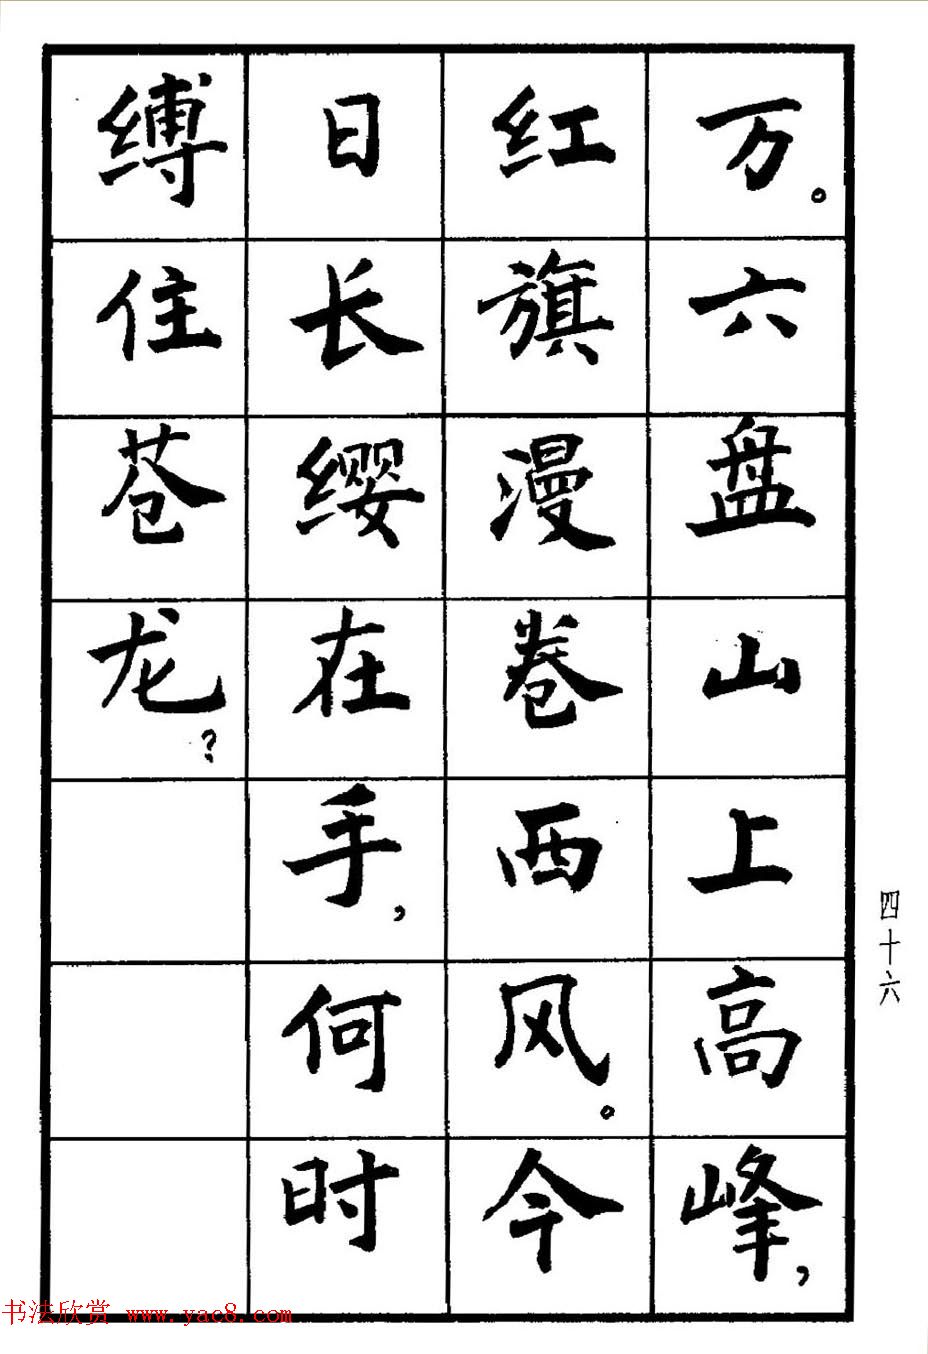 万。六盘山上高峰，
红旗漫卷西风。今
日长缨在手，何时
缚住苍龙？
四十六
书法欣赏 www.yac8.com